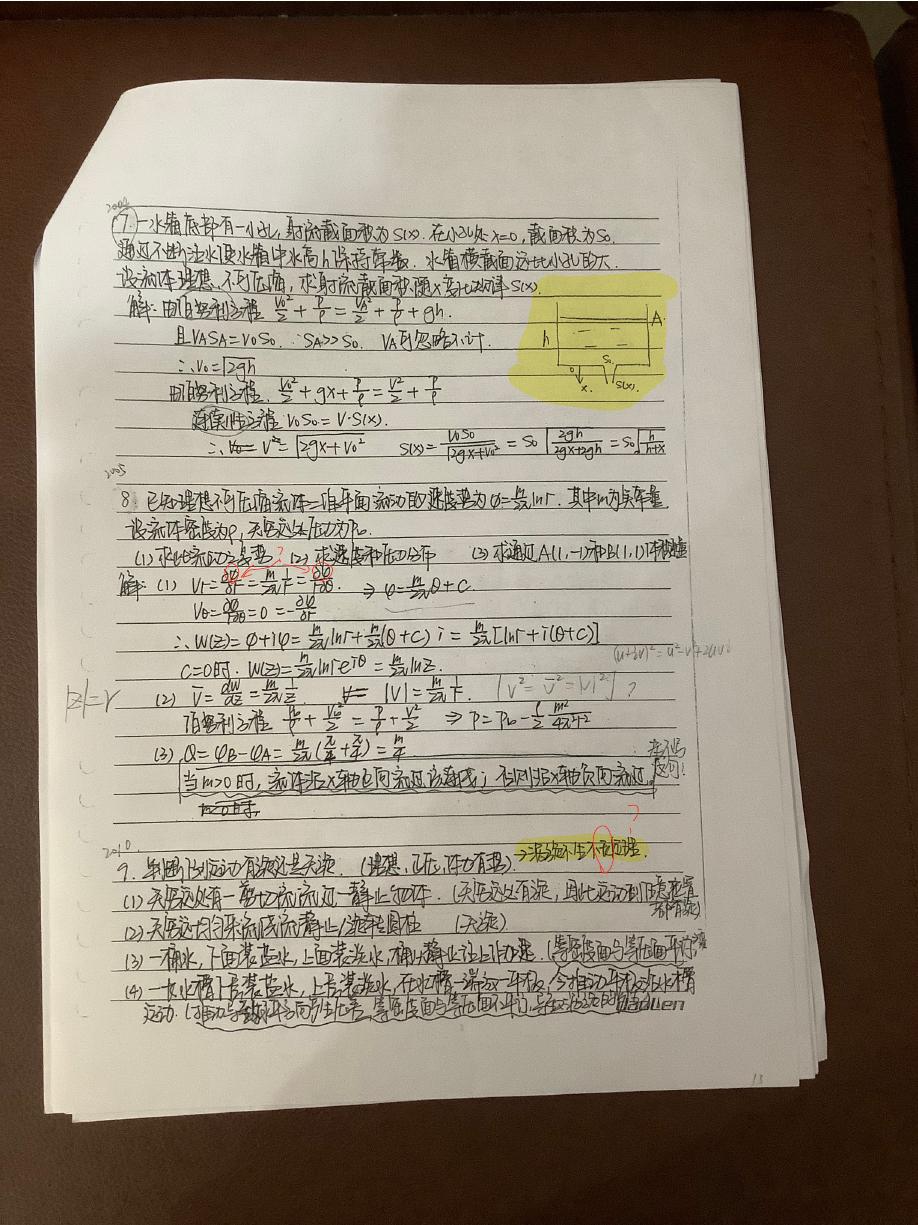 2004
7. 一水箱底部有一小孔,射流截面积为S(x). 在小孔处x=0,截面积为S₀.
通过不断注水使水箱中水高h保持常数. 水箱横截面远比小孔的大.
设流体理想、不可压缩,求射流截面积随x变化规律S(x).
解: 由伯努利方程 V₀²/2 + P/ρ = V_A²/2 + P/ρ + gh
且V_A S_A = V₀S₀. ∵ S_A>>S₀. V_A可忽略不计.
∴ V₀=√2gh
由伯努利方程. V₀²/2 + gx + P/ρ = V²/2 + P/ρ
连续性方程 V₀S₀ = V·S(x).
∴ V = √(2gx+V₀²) S(x) = V₀S₀/√(2gx+V₀²) = S₀√(2gh/(2gx+2gh)) = S₀√(h/(h+x))
A
h
S₀
0
x
S(x).
2005
8. 已知理想不可压缩流体二维平面流动的速度势为φ=m/2π lnr. 其中m为实常量
设流体密度为ρ,无穷远处压力为P∞.
(1) 求此流动之复势 ? (2) 求速度和压力分布 (3) 求通过A(1,-1)和B(1,1)
解: (1) Vr = ∂φ/∂r = m/2π · 1/r = ∂ψ/r∂θ. ⇒ ψ = m/2π θ + C.
Vθ = ∂φ/r∂θ = 0 = -∂ψ/∂r
∴ W(z) = φ+iψ = m/2π lnr + m/2π(θ+C) i = m/2π [lnr + i(θ+C)]
C=0时. W(z) = m/2π ln re^iθ = m/2π lnz.
(u+iv)² = u²-v²+2uvi
|z|=r
(2) V̄ = dw/dz = m/2π 1/z |V| = m/2π 1/r. | V² = V̄² = |V|² | ?
伯努利方程 P∞/ρ + V∞²/2 = P/ρ + V²/2 ⇒ P = P∞ - ρ/2 m²/4π²r²
(3) Q = ψB - ψA = m/2π (π/4 + π/4) = m/4
当m>0时,流体沿x轴正向流过该连线; 否则沿x轴负向流过.
m>0时.
2010
9. 判断下列运动有旋还是无旋. (理想、正压、体力有势). →涡旋不生不灭定理.
?
(1) 无穷远处有一剪切流流过一静止物体. (无穷远处有旋,因此运动到任意位置都有旋)
(2) 无穷远均匀来流绕流静止/旋转圆柱 (无旋)
(3) 一桶水,下面装盐水,上面装淡水,桶从静止往上加速. (等密度面与等压面平行
(4) 一长水槽下层装盐水,上层装淡水,在水槽一端放一平板,今推动平板沿水槽
运动.
13